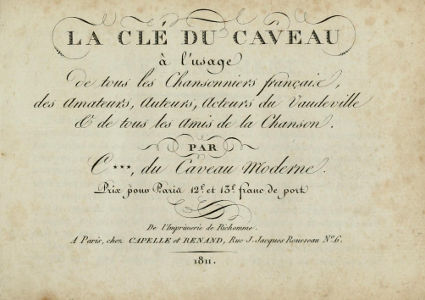 LA CLÉ DU CAVEAU
à l'usage
de tous les Chansonniers français,
des Amateurs, Auteurs, Acteurs du Vaudeville
& de tous les Amis de la Chanson.
PAR
C***, du Caveau Moderne.
Prix pour Paris 12.f et 13.f franc de port
De l'Imprimerie de Richomme.
A Paris, chez CAPELLE et RENAND, Rue J. Jacques Rousseau N.o 6.
1811.